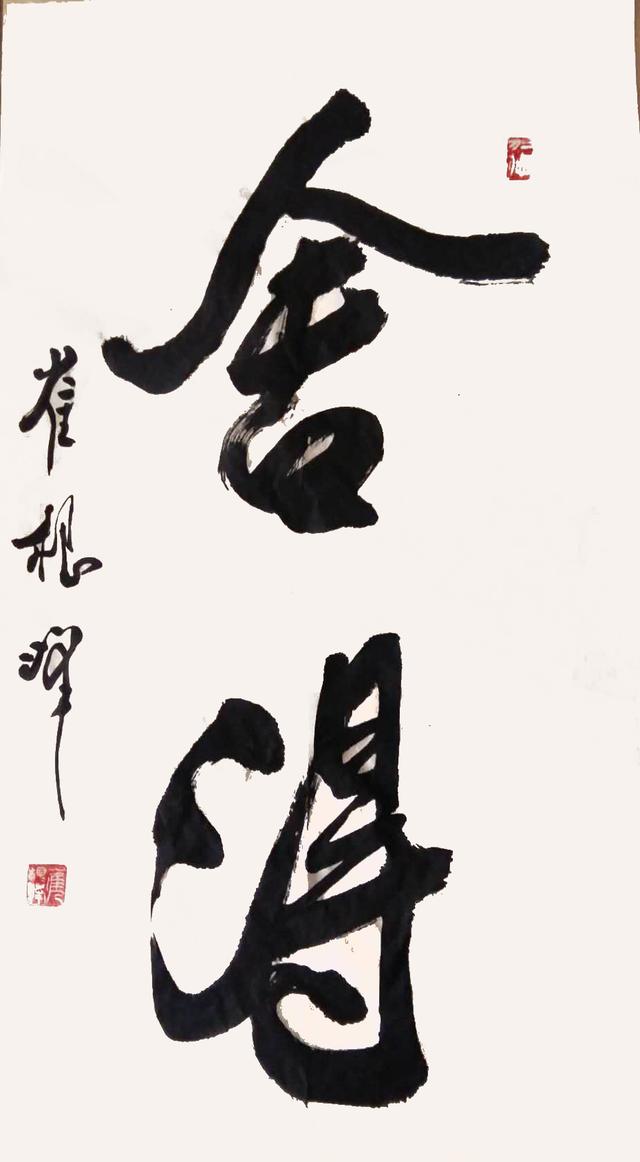 舍得
崔根峰